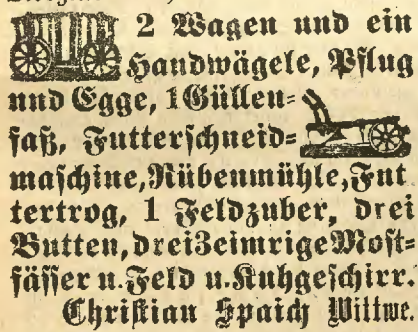 2 Wagen und ein
Handwägele, Pflug
und Egge, 1 Güllen=
faß, Futterschneid=
maschine, Rübenmühle, Fut
tertrog, 1 Feldzuber, drei
Butten, drei 3eimrige Most=
fässer u. Feld u. Kuhgeschirr.
Christian Spaich Wittwe.